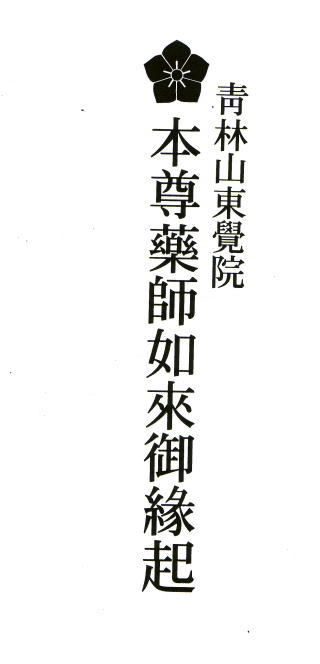 靑林山東覺院
本尊藥師如來御緣起